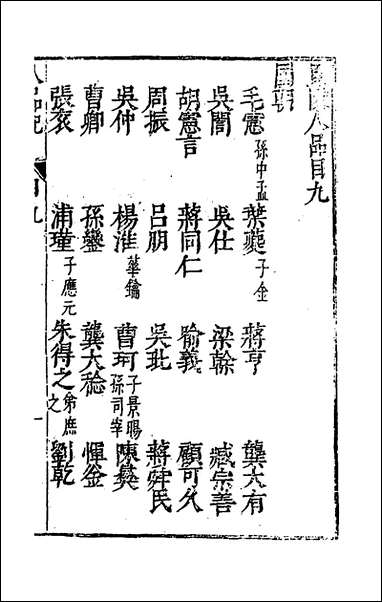 毘陵人品目九
國朝
毛憲 孫中孟 葉夔 子金 蔣亨 龔大有
吳誾 吳仕 梁榦 臧宗善
胡憲言 蔣同仁 喻義 顧可久
周振 呂朋 吳玭 蔣舜民
吳仲 楊淮 華鑰 曹珂 子景暘 孫司宰 陳奠
曹卿 孫鑾 龔大稔 惲釜
張袞 浦瑾 子應元 朱得之 弟庶之 劉乾
人品記 目九 一